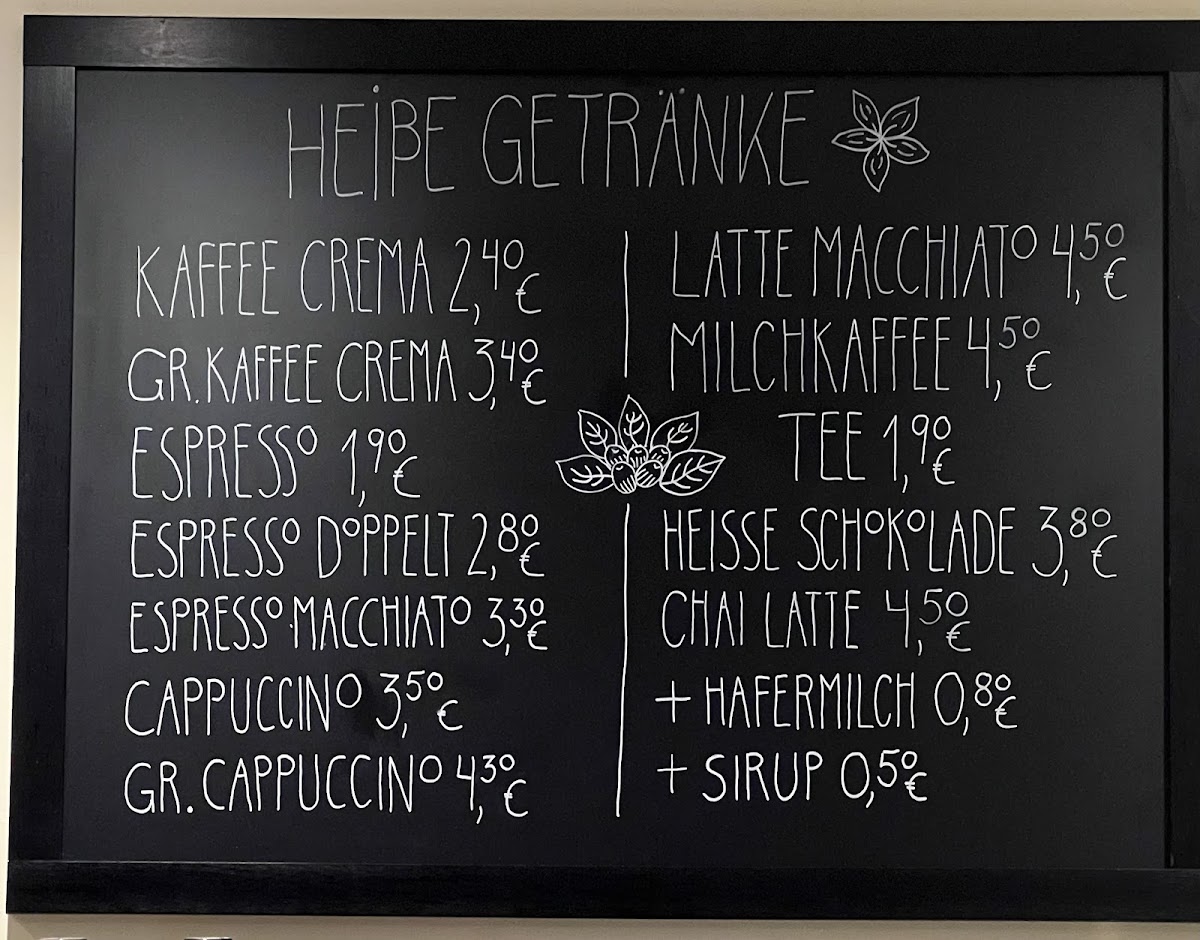 HEIßE GETRÄNKE
KAFFEE CREMA 2,40€
GR. KAFFEE CREMA 3,40€
ESPRESSO 1,90€
ESPRESSO DOPPELT 2,80€
ESPRESSO MACCHIATO 3,30€
CAPPUCCINO 3,50€
GR. CAPPUCCINO 4,30€
LATTE MACCHIATO 4,50€
MILCHKAFFEE 4,50€
TEE 1,90€
HEISSE SCHOKOLADE 3,80€
CHAI LATTE 4,50€
+ HAFERMILCH 0,80€
+ SIRUP 0,50€